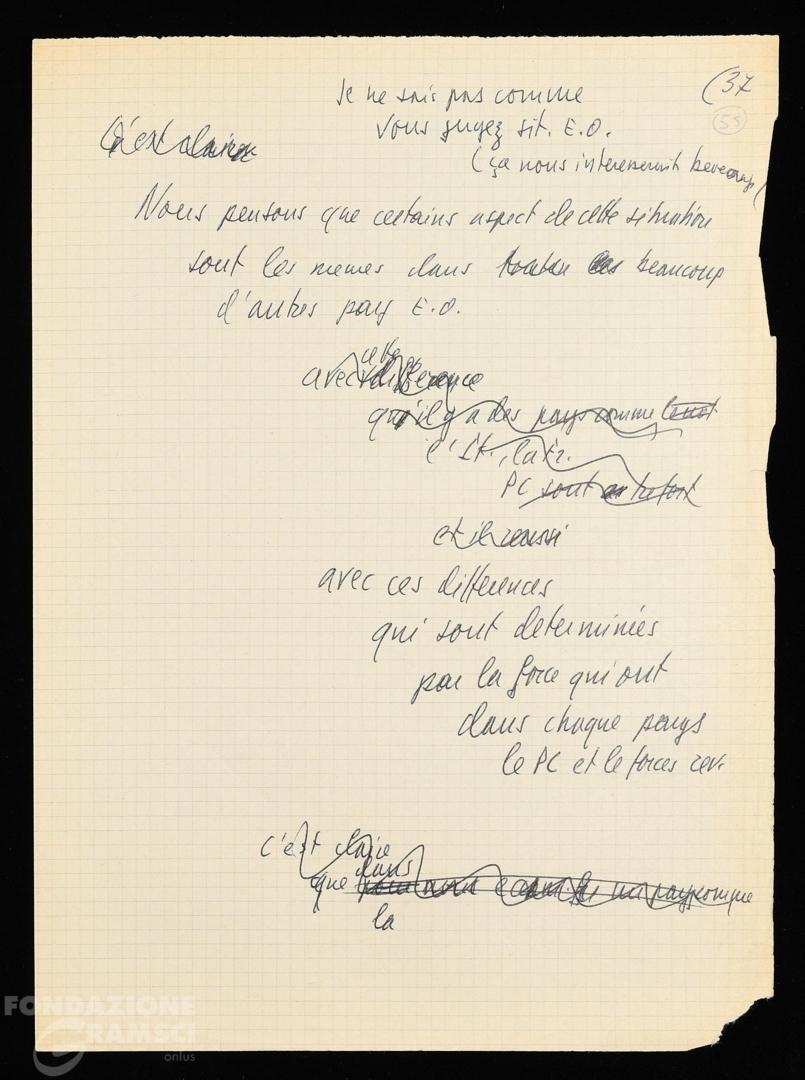 (37
je ne sais pas comme
(55)
vous jugez sit. E.O.
C'est claire
(ça nous interesserait beaucoup)
Nous pensons que certains aspect de cette situation
sont les memes dans toutes les beaucoup
d'autres pays E.O.
avec cette difference
qu'il y a des pays comme
l'It., la Fr.
PC sont
et il reussi
avec ces differences
qui sont determinées
par la force qui ont
dans chaque pays
le PC et le forces rev.
c'est claire
que dans un pays comme
la
FONDAZIONE
GRAMSCI
onlus